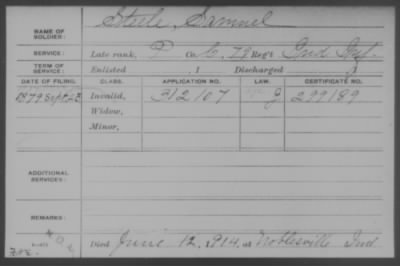 Steele, Samuel
NAME OF SOLDIER:
SERVICE: Late rank, P Co. C, 79 Reg't Ind Inf.
TERM OF SERVICE: Enlisted , 1 Discharged , 1
DATE OF FILING. CLASS. APPLICATION NO. LAW. CERTIFICATE NO.
1879 Sept. 22 Invalid, 312107 G 299189
Widow,
Minor,
ADDITIONAL SERVICES:
REMARKS:
Died June 12, 1914, at Noblesville Ind